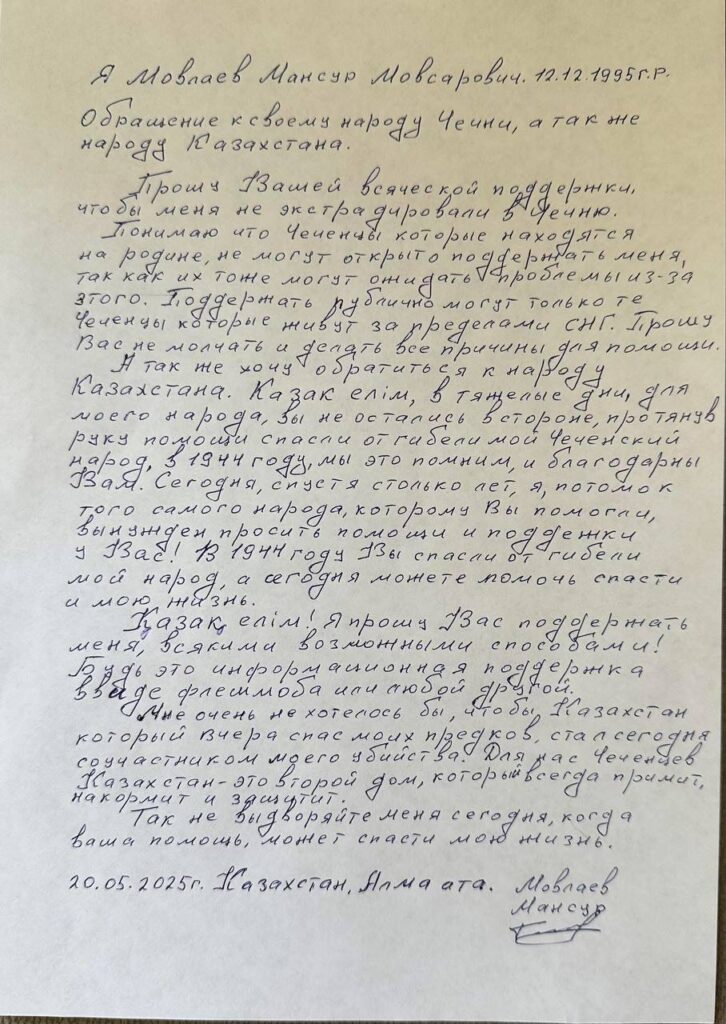 Я Мовлаев Мансур Мовсарович. 12.12.1995г.р.
Обращение к своему народу Чечни, а так же
народу Казахстана.
Прошу Вашей всяческой поддержки,
чтобы меня не экстрадировали в Чечню.
Понимаю что Чеченцы которые находятся
на родине, не могут открыто поддержать меня,
так как их тоже могут ожидать проблемы из-за
этого. Поддержать публично могут только те
Чеченцы которые живут за пределами СНГ. Прошу
Вас не молчать и делать все причины для помощи.
А так же хочу обратиться к народу
Казахстана. Казак елім, в тяжелые дни, для
моего народа, вы не остались в стороне, протянув
руку помощи спасли от гибели мой Чеченский
народ, в 1944 году, мы это помним, и благодарны
Вам. Сегодня, спустя столько лет, я, потомок
того самого народа, которому Вы помогли,
вынужден просить помощи и поддежки
у Вас! В 1944 году Вы спасли от гибели
мой народ, а сегодня можете помочь спасти
и мою жизнь.
Қазақ елім! Я прошу Вас поддержать
меня, всякими возможными способами!
Будь это информационная поддержка
в виде флешмоба или любой другой.
Мне очень не хотелось бы, чтобы, Казахстан
который вчера спас моих предков, стал сегодня
соучастником моего убийства. Для нас Чеченцев
Казахстан - это второй дом, который всегда примит,
накормит и защутит.
Так не выдворяйте меня сегодня, когда
ваша помощь, может спасти мою жизнь.
20.05.2025г. Казахстан, Алма ата. Мовлаев
Мансур